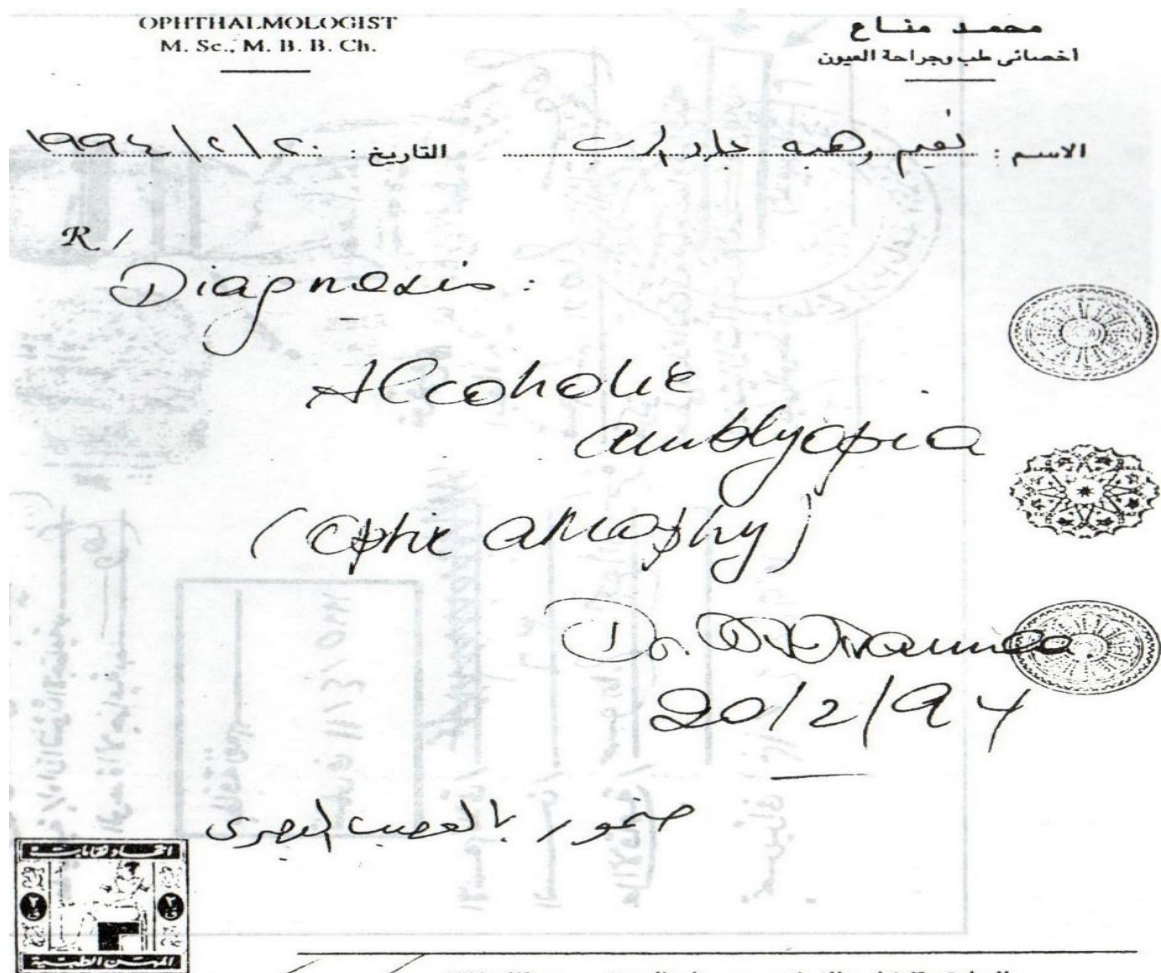 OPHTHALMOLOGIST
M. Sc., M. B. B. Ch.
محمد مناع
أخصائى طب وجراحة العيون
الاسم : نعيم وهبه جاد
التاريخ : ٢٠/٢/١٩٩٤
R/
Diagnosis:
Alcoholic
amblyopia
(Optic atrophy)
Dr.
20/2/94
ضمور بالعصب البصرى
المهن الطبية